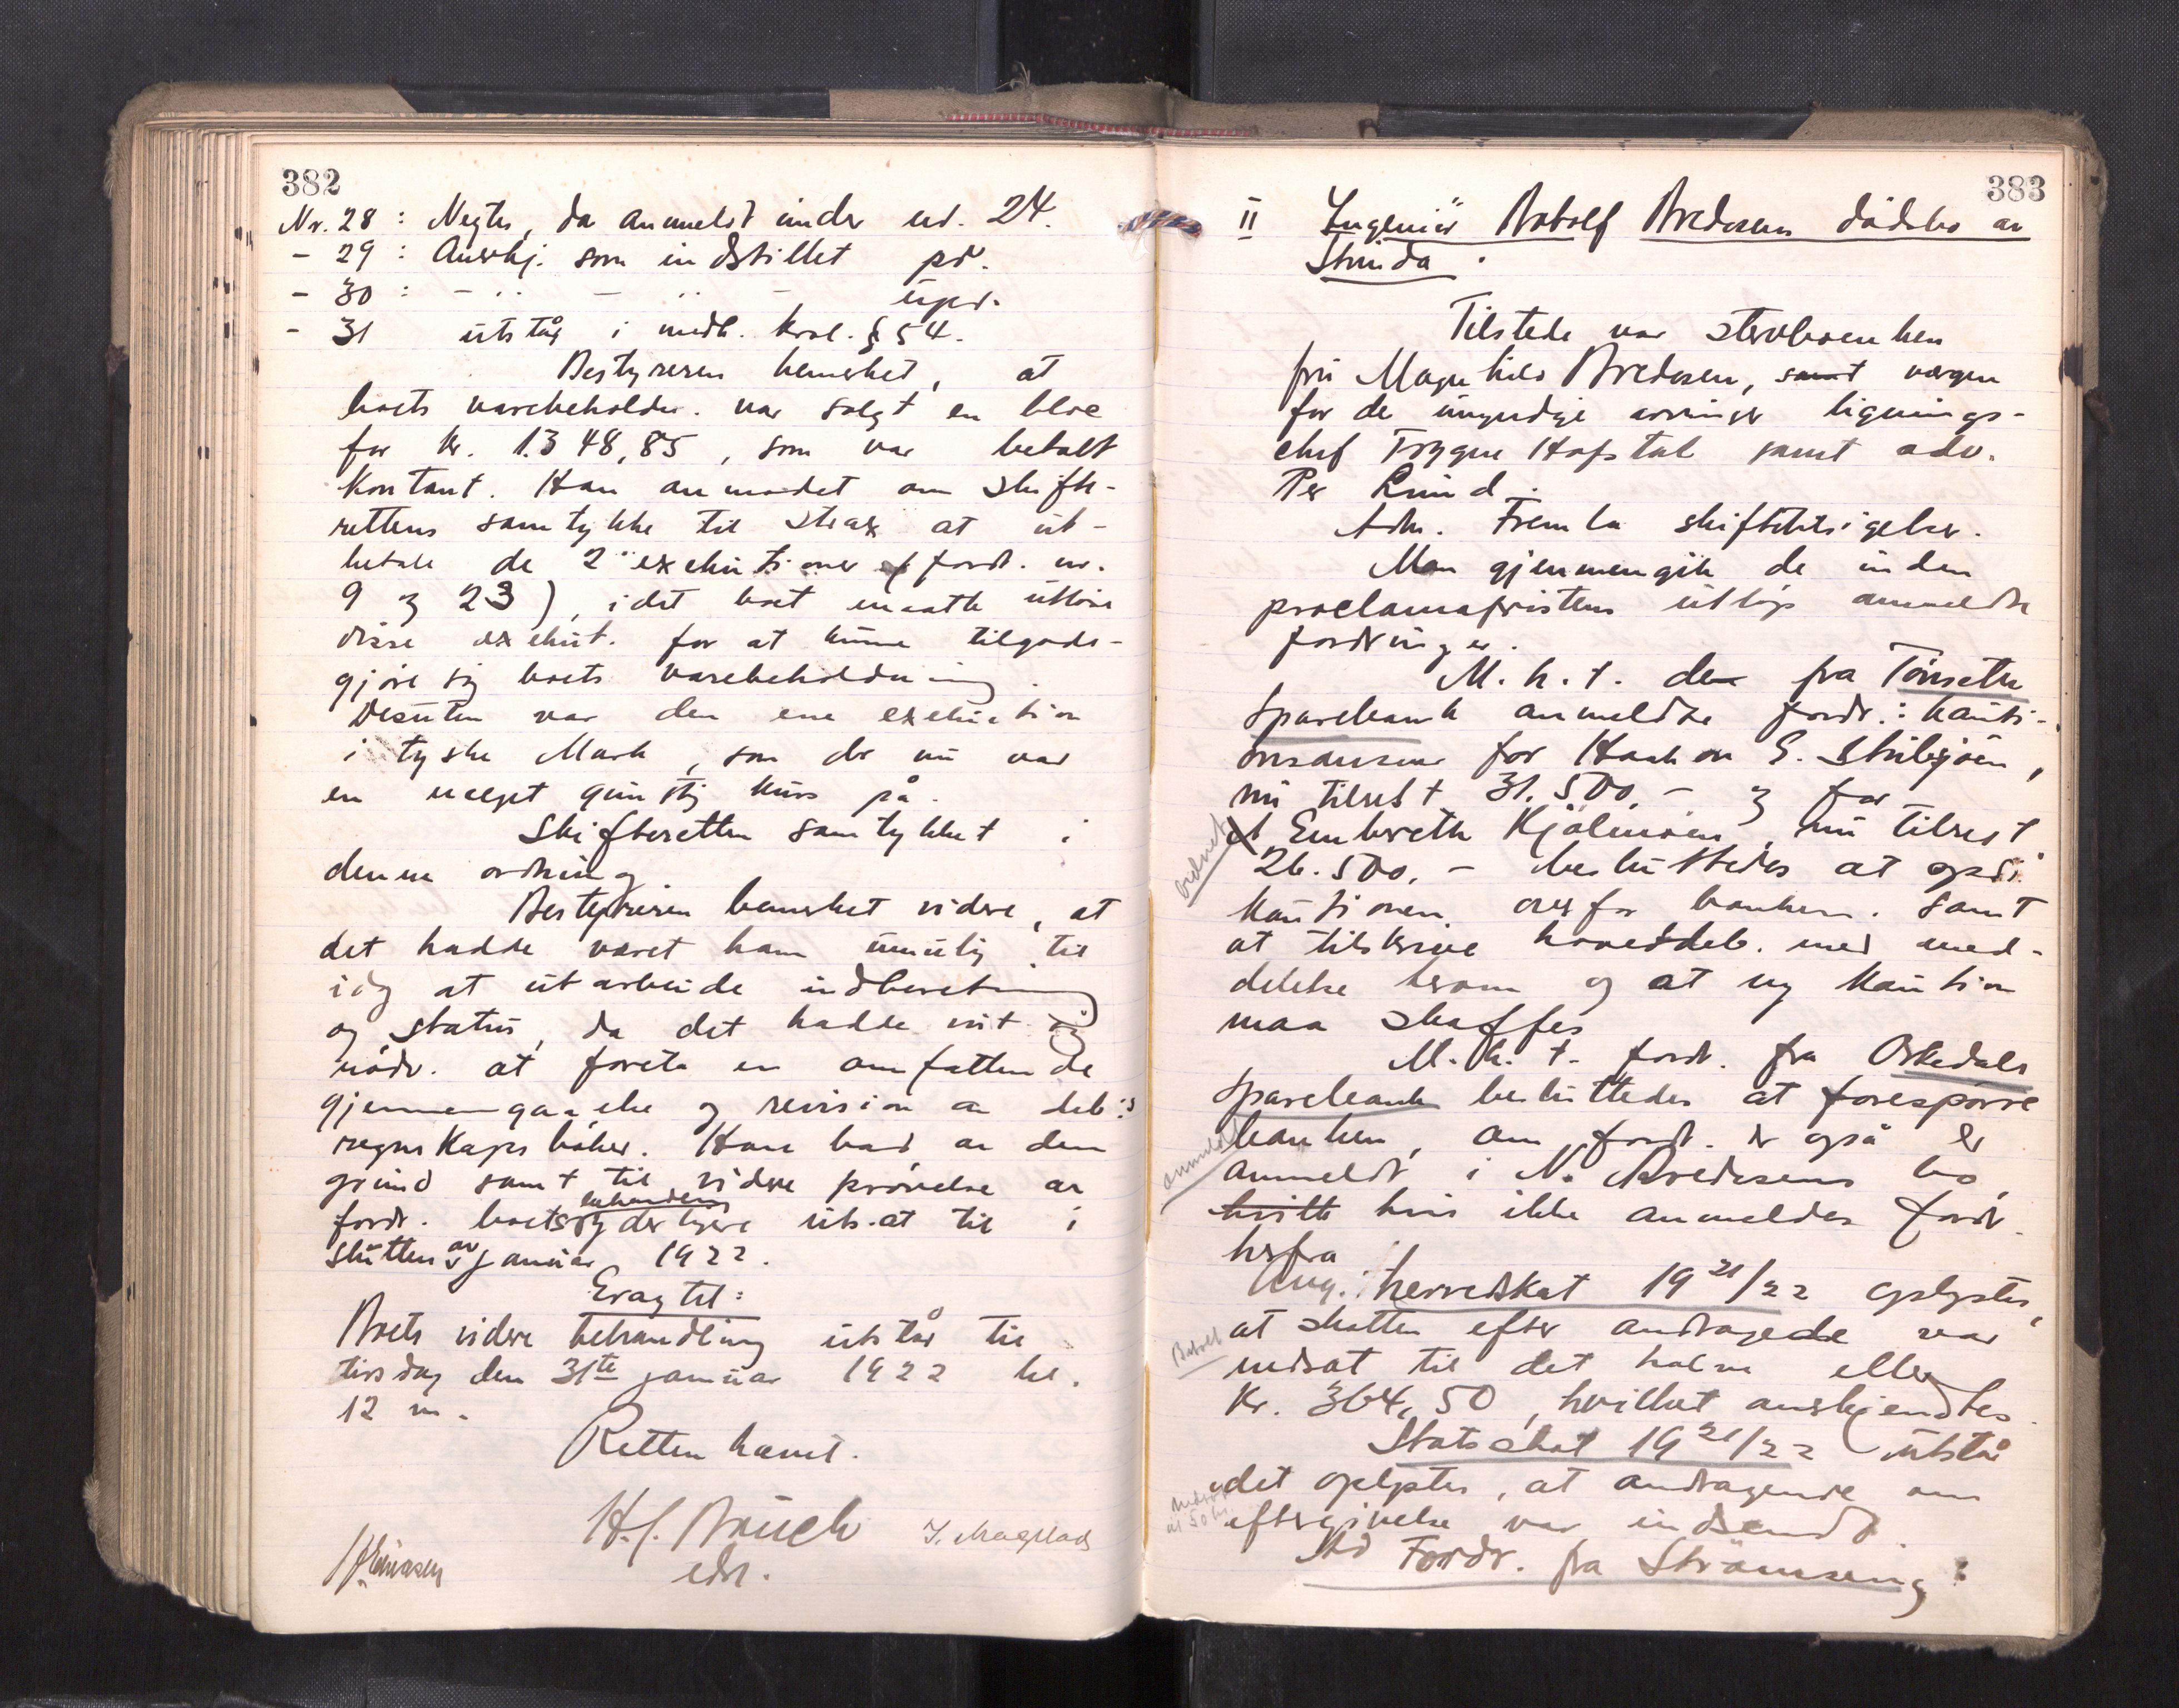 382
Nr. 28 : Negtes, da anmeldt under nr. 24.
- 29 : Anerkj. som indstillet pd.
- 30 : - .. - .. - upd.
- 31 utstår i medh. krsl. § 54.
Bestyreren bemerket, at
boets varebeholdn. var solgt en bloc
for kr. 1348,85, som var betalt
kontant. Han anmodet om skifte-
rettens samtykke til strax at ut-
betale de 2 exekutioner (fordr. nr.
9 og 23), idet boet maatte utløse
disse exekut. for at kunne tilgode-
gjøre sig boets varebeholdning.
Desuten var den ene exekution
i tyske Mark, som der nu var
en meget gunstig kurs på.
Skifteretten samtykket i
denne ordning
Bestyreren bemerket videre, at
det hadde været ham umulig til
idag at utarbeide indberetning
og status, da det hadde vist sig
nødv. at foreta en omfattende
gjennemgaaelse og revision av deb:s
regnskapsbøker. Han bad av den
grund samt til videre prøvelse av
fordr. boets behandling yderligere uts.at til i
slutten av januar 1922.
Eragtet:
Boets videre behandling utstår til
tirsdag den 31te januar 1922 kl.
12 m.
Retten hævet.
H.J. Bauck
edsv.
383
II Ingeniør Botolf Bredesens dødsbo av
Strinda.
Tilstede var stervboenken
fru Magnhild Bredesen, samt vergen
for de umyndige arvinger lignings-
chef Trygve Hofstad samt adv.
Per Lund.
Adm. Fremla skiftetilsigelser.
Man gjennemgik de inden
proclamafristens utløp anmeldte
fordringer.
M.h.t. den fra Tønsette
Sparebank anmeldte fordr.: kauti-
onsansvar for Haakon E. Stubsjøen,
nu tilrest 31.500.- og for
Embrethe Kjølmoen, nu tilrest
26.500.- besluttedes at opsi
kautionen overfor banken. samt
at tilskrive hoveddeb. med med-
delelse herom og at ny kaution
maa skaffes
ordnet
M.h.t. fordr. fra Orkedals
Sparebank besluttedes at forespørre
banken, om fordr. er også er
anmeldt i N. Bredesens bo,
hvilk hvis ikke anmeldes fordr.
herfra
anmeldt
Ang. herredskat 19 21/22 oplystes,
at skatten efter andragende var
nedsat til det halve eller
kr. 364,50, hvilket anerkjendtes.
Betalt
Statsskat 19 21/22 utstår
idet oplystes, at andragende om
eftergivelse var indsendt
Nedsat
til 50 kr.
Ad Fordr. fra Strømseng :